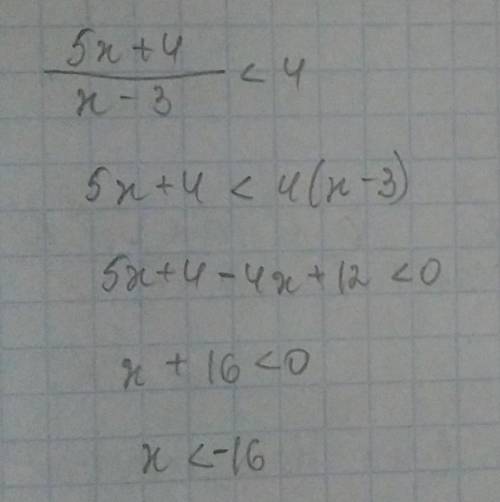 (5x+4)/(x-3) < 4
5x+4 < 4(x-3)
5x+4-4x+12 <0
x+16<0
x<-16